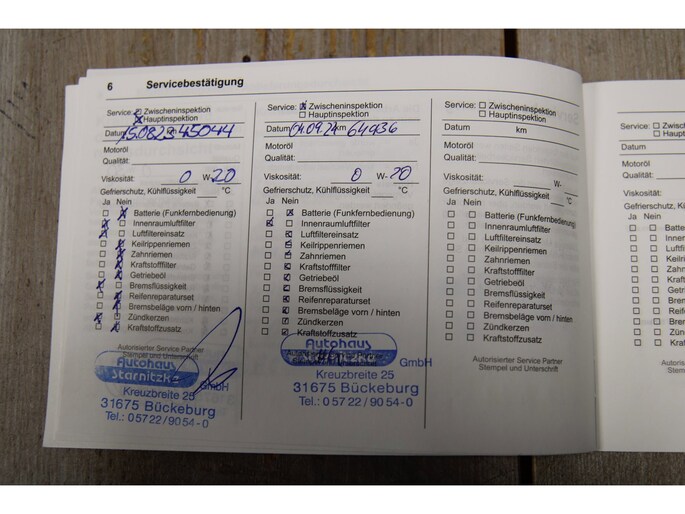 6 Servicebestätigung
Service: ☐ Zwischeninspektion
☒ Hauptinspektion
Datum 15.08.23 km 45044
Motoröl
Qualität:
Viskosität: 0 W-20
Gefrierschutz, Kühlflüssigkeit °C
Ja Nein
☐ ☒ Batterie (Funkfernbedienung)
☒ ☐ Innenraumluftfilter
☒ ☐ Luftfiltereinsatz
☐ ☒ Keilrippenriemen
☐ ☒ Zahnriemen
☐ ☒ Kraftstofffilter
☐ ☒ Getriebeöl
☒ ☐ Bremsflüssigkeit
☐ ☒ Reifenreparaturset
☐ ☒ Bremsbeläge vorn / hinten
☒ ☐ Zündkerzen
☐ ☒ Kraftstoffzusatz
Autorisierter Service Partner
Stempel und Unterschrift
Autohaus
Starnitzke
GmbH
Kreuzbreite 25
31675 Bückeburg
Tel.: 0 57 22 / 90 54 - 0
Service: ☒ Zwischeninspektion
☐ Hauptinspektion
Datum 04.09.24 km 64936
Motoröl
Qualität:
Viskosität: 0 W-20
Gefrierschutz, Kühlflüssigkeit °C
Ja Nein
☐ ☒ Batterie (Funkfernbedienung)
☒ ☐ Innenraumluftfilter
☐ ☒ Luftfiltereinsatz
☐ ☒ Keilrippenriemen
☐ ☒ Zahnriemen
☐ ☒ Kraftstofffilter
☐ ☒ Getriebeöl
☐ ☒ Bremsflüssigkeit
☐ ☒ Reifenreparaturset
☐ ☒ Bremsbeläge vorn / hinten
☐ ☒ Zündkerzen
☐ ☒ Kraftstoffzusatz
Autohaus
Starnitzke
GmbH
Kreuzbreite 25
31675 Bückeburg
Tel.: 0 57 22 / 90 54 - 0
Service: ☐ Zwischeninspektion
☐ Hauptinspektion
Datum km
Motoröl
Qualität:
Viskosität: W-
Gefrierschutz, Kühlflüssigkeit °C
Ja Nein
☐ ☐ Batterie (Funkfernbedienung)
☐ ☐ Innenraumluftfilter
☐ ☐ Luftfiltereinsatz
☐ ☐ Keilrippenriemen
☐ ☐ Zahnriemen
☐ ☐ Kraftstofffilter
☐ ☐ Getriebeöl
☐ ☐ Bremsflüssigkeit
☐ ☐ Reifenreparaturset
☐ ☐ Bremsbeläge vorn / hinten
☐ ☐ Zündkerzen
☐ ☐ Kraftstoffzusatz
Autorisierter Service Partner
Stempel und Unterschrift
Service: ☐ Zwisc
☐ Haupt
Datum
Motoröl
Qualität:
Viskosität:
Gefrierschutz, Kü
Ja Nein
☐ ☐ Batte
☐ ☐ Innen
☐ ☐ Luftfil
☐ ☐ Keilri
☐ ☐ Zahn
☐ ☐ Kraft
☐ ☐ Getri
☐ ☐ Brem
☐ ☐ Reife
☐ ☐ Brem
☐ ☐ Zünd
☐ ☐ Kraft
Autorisi
Stem